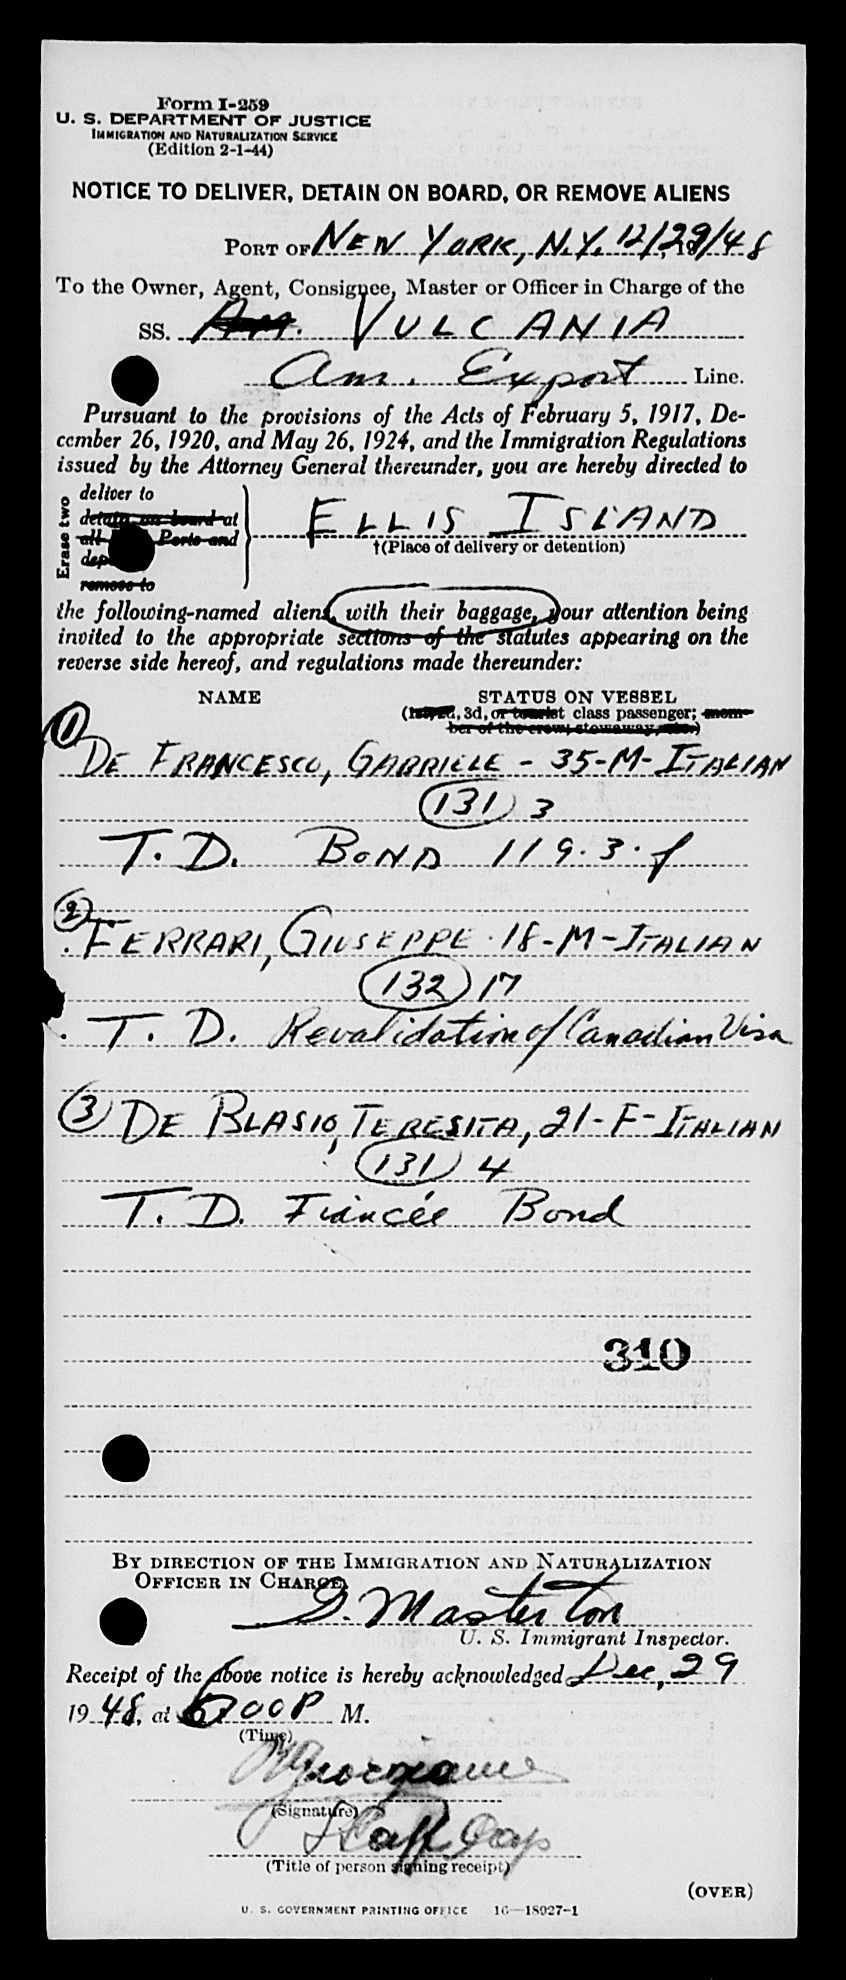 Form I-259
U. S. DEPARTMENT OF JUSTICE
IMMIGRATION AND NATURALIZATION SERVICE
(Edition 2-1-44)
NOTICE TO DELIVER, DETAIN ON BOARD, OR REMOVE ALIENS
PORT OF NEW YORK, N.Y. 12/29/48
To the Owner, Agent, Consignee, Master or Officer in Charge of the
SS. Am. VULCANIA
Am. Export Line.
Pursuant to the provisions of the Acts of February 5, 1917, De-
cember 26, 1920, and May 26, 1924, and the Immigration Regulations
issued by the Attorney General thereunder, you are hereby directed to
Erase two
deliver to
detain on board at
all Ports and
remove to
ELLIS ISLAND
†(Place of delivery or detention)
the following-named aliens, with their baggage, your attention being
invited to the appropriate sections of the statutes appearing on the
reverse side hereof, and regulations made thereunder:
NAME STATUS ON VESSEL
3d, or tourist class passenger; mem-
ber of the crew, stowaway,
1
DE FRANCESCO, GABRIELE - 35-M-ITALIAN
131 3
T. D. BOND 119.3.f
2
FERRARI, GIUSEPPE - 18-M-ITALIAN
132 17
T. D. Revalidation of Canadian Visa
3 DE BLASIO, TERESITA, 21-F-ITALIAN
131 4
T. D. Fiancée Bond
310
BY DIRECTION OF THE IMMIGRATION AND NATURALIZATION
OFFICER IN CHARGE,
G. Masterton
U. S. Immigrant Inspector.
Receipt of the above notice is hereby acknowledged Dec, 29
1948, at 600P M.
(Time)
(Signature)
Staff Capt
(Title of person signing receipt)
(OVER)
U. S. GOVERNMENT PRINTING OFFICE 16—18927-1